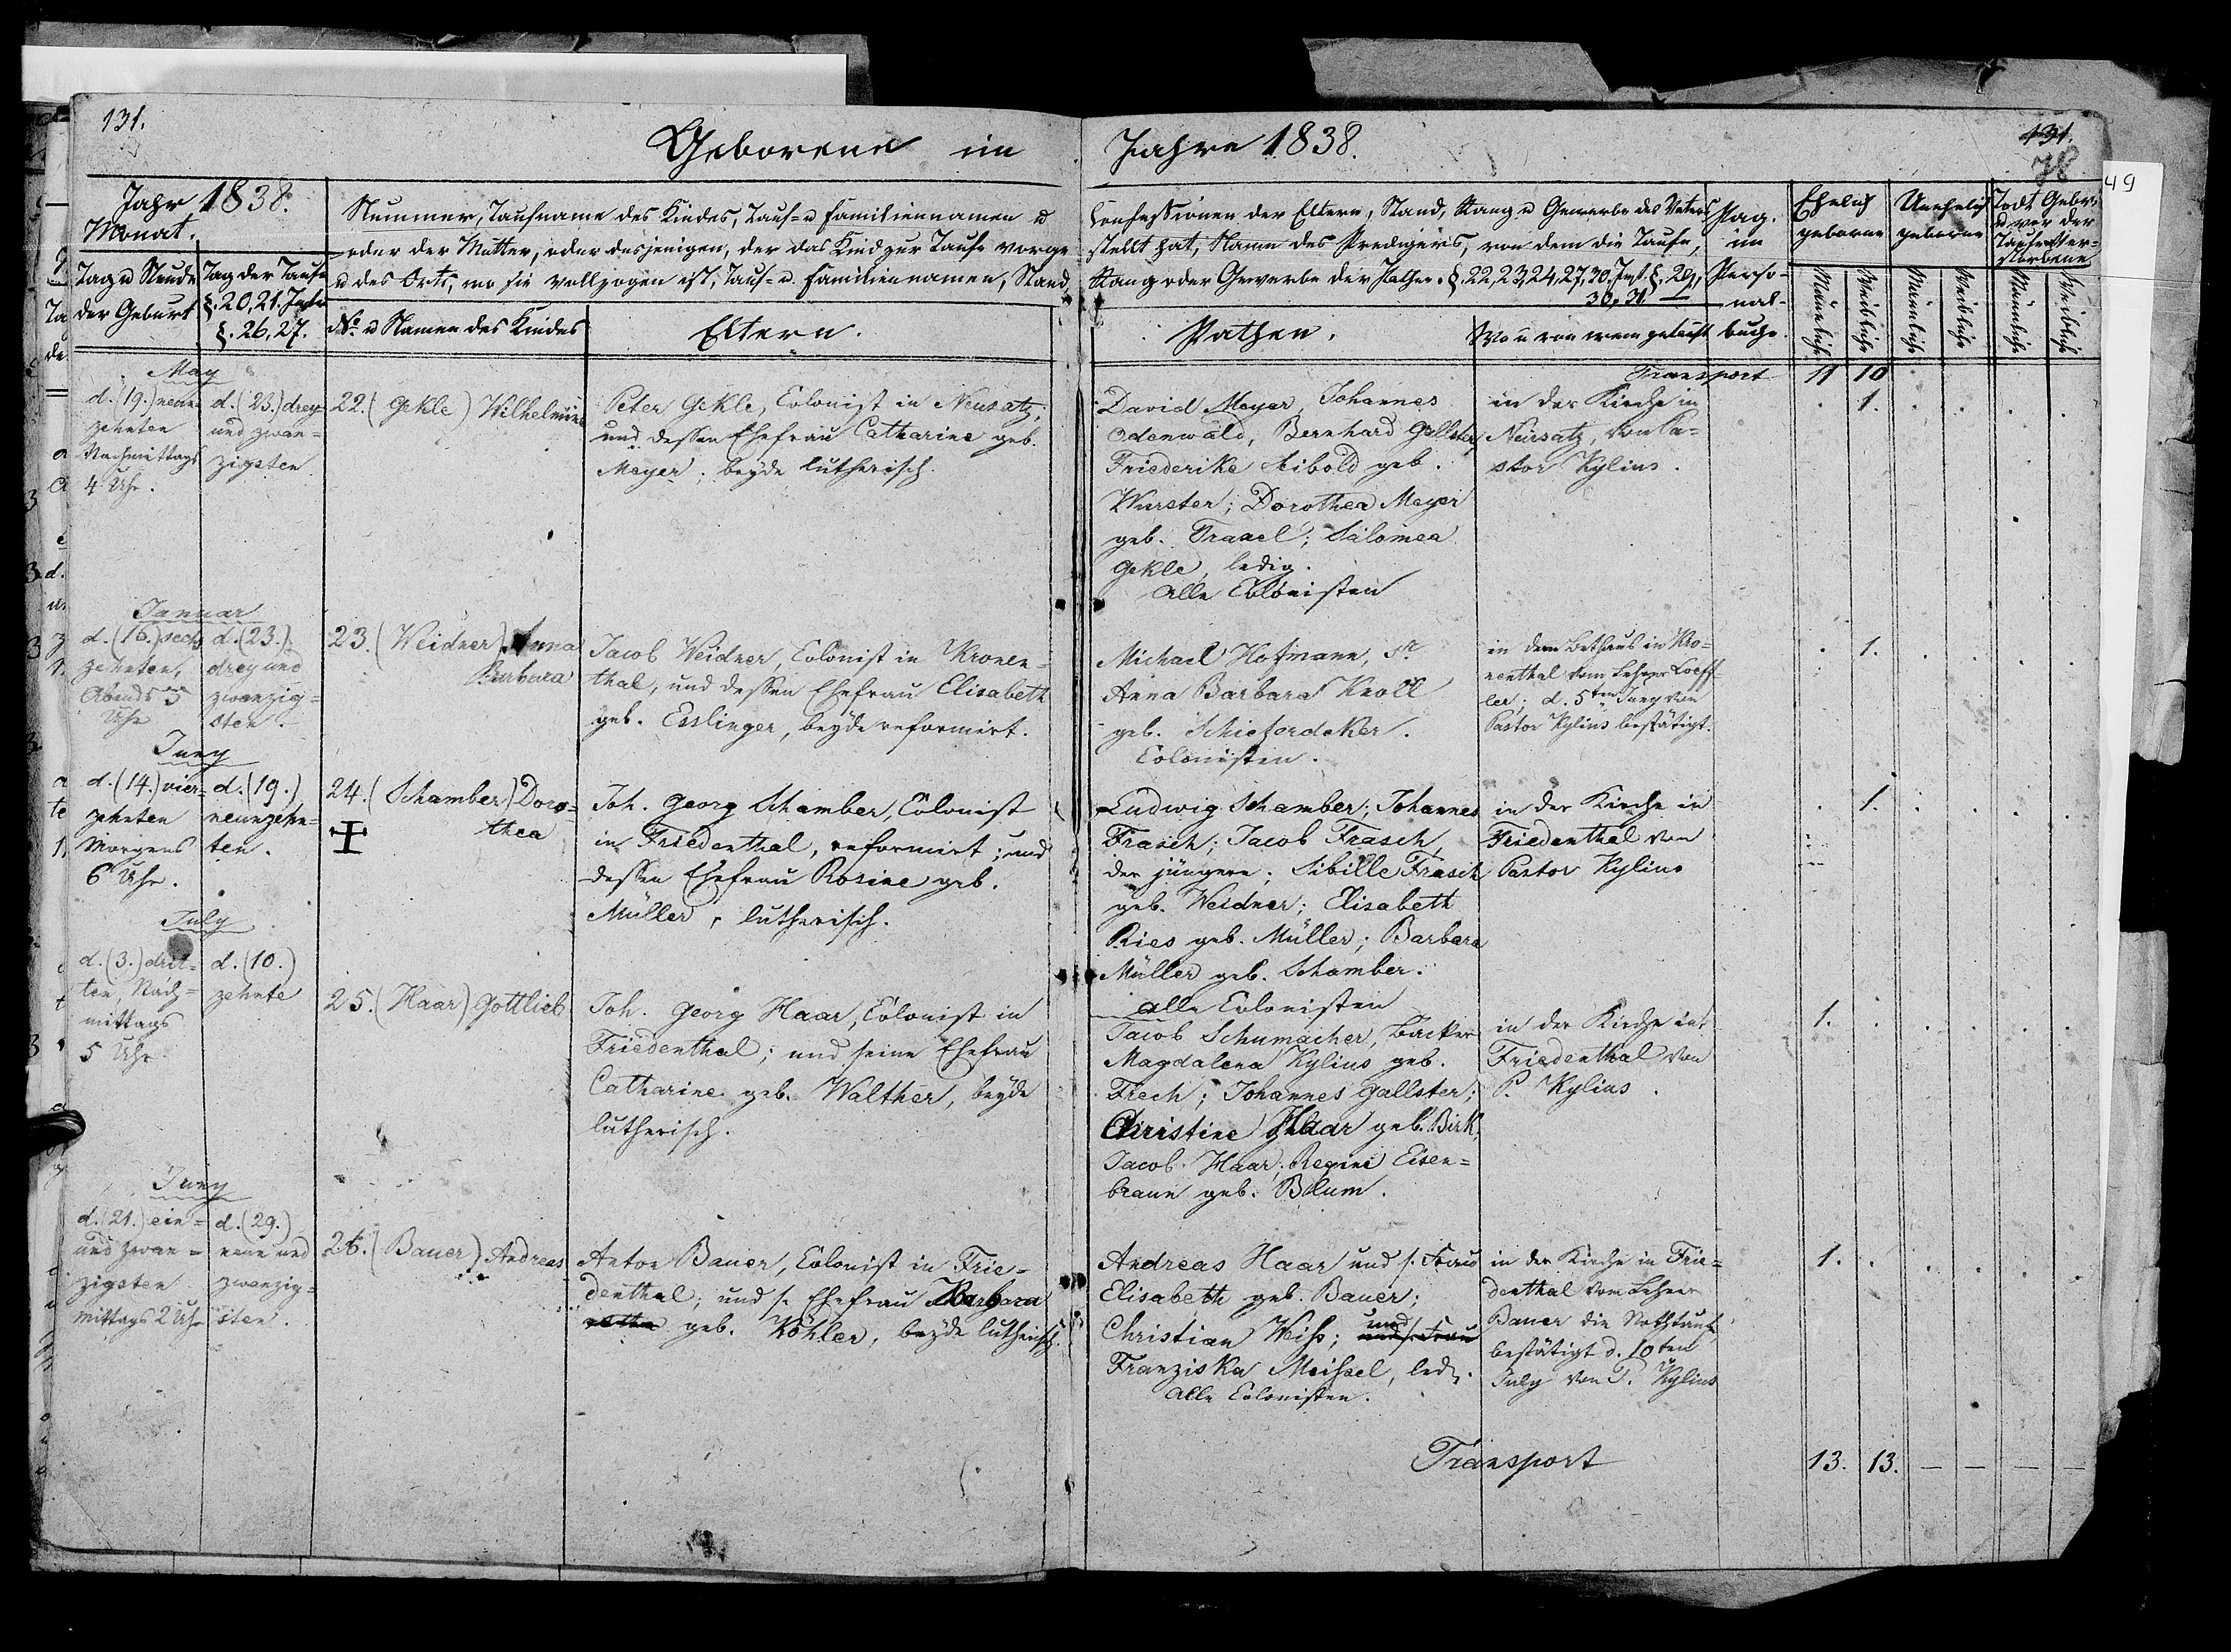 131.
Geborene im Jahre 1838.
131.
78
49
Jahr 1838.
Monat.
Tag u Stunde
der Geburt
Tag der Taufe
§. 20, 21. Instr
§. 26, 27.
Nummer, Taufname des Kindes, Tauf= u Familiennamen u Confessionen der Eltern, Stand, Rang u Gewerbe des Vaters
oder der Mutter, oder desjenigen, der das Kind zur Taufe vorge stellt hat; Name des Predigers, von dem die Taufe,
u des Orts, wo sie vollzogen ist, Tauf= u. Familiennamen, Stand, Rang oder Gewerbe der Pathen. §. 22, 23, 24, 27, 30. Inst. §. 29,
30, 31.
No. u Namen des Kindes
Eltern.
Pathen.
Wo u von wem getauft
Pag.
im
Perso-
nal-
buche.
Ehelich
geborne
Unehelich
geborne
Todt Gebr.
u vor der
Taufe Ver=
storbene
Männliche
Weibliche
Männliche
Weibliche
Männliche
Weibliche
Transport 11 10
May
d. (19.) neun
zehnten
Nachmittags
4 Uhr.
d. (23.) drey
und zwan=
zigsten
22. (Gekle) Wilhelmine
Peter Gekle, Colonist in Neusatz;
und dessen Ehefrau Catharine geb.
Meyer; beyde lutherisch.
David Meyer, Johannes
Odenwald, Bernhard Gallster,
Friederike Leibold geb.
Wurster; Dorothea Meyer
geb. Traxel; Salomea
Gekle, ledig.
Alle Colonisten
in der Kirche in
Neusatz, von Pa=
stor Kylius.
1.
Januar
d. (16.) sech
zehnten,
Abends 5
Uhr
d. (23.)
drey und
zwanzig=
sten.
23. (Weidner) Anna
Barbara
Jacob Weidner, Colonist in Kronen=
thal, und dessen Ehefrau Elisabeth
geb. Esslinger, beyde reformirt.
Michael Hofmann, sr.
Anna Barbara Kroll
geb. Schieferdeker.
Colonisten.
in dem Bethaus in Kro=
nenthal vom Lehrer Loeff=
ler; d. 5ten Juny von
Pastor Kylius bestätigt.
1.
Juny
d. (14.) vier=
zehnten
Morgens
6 Uhr.
d. (19.)
neunzehn=
ten.
24. (Schamber) Doro=
thea
Joh. Georg Schamber, Colonist
in Friedenthal, reformirt; und
dessen Ehefrau Rosine geb.
Müller, lutherisch.
Ludwig Schamber; Johannes
Frasch; Jacob Frasch,
der jüngere; Sibille Frasch
geb. Weidner; Elisabeth
Ries geb. Müller; Barbara
Müller geb. Schamber.
alle Colonisten
in der Kirche in
Friedenthal von
Pastor Kylius
1.
July
d. (3.) drit=
ten, Nach=
mittags
5 Uhr
d. (10.)
zehnte
25. (Haar) Gottlieb
Joh. Georg Haar, Colonist in
Friedenthal; und seine Ehefrau
Catharine geb. Walther, beyde
lutherisch.
Jacob Schumacher, Backer
Magdalena Kylius geb.
Frech; Johannes Gallster;
Christine Haar geb. Birk,
Jacob Haar; Regine Eisen=
braun geb. Blum.
in der Kirche in
Friedenthal von
P. Kylius.
1.
Juny
d. (21.) ein=
und zwan=
zigsten
mittags 2 Uhr
d. (29.)
neun und
zwanzig=
sten.
26. (Bauer) Andreas
Anton Bauer, Colonist in Frie=
denthal; und s. Ehefrau Barbara
geb. Köhler, beyde lutherisch.
Andreas Haar und s. Frau
Elisabeth geb. Bauer;
Christian Weiß; und
und s. Frau
Franziska Meissel, led.
Alle Colonisten.
in der Kirche in Frie=
denthal vom Lehrer
Bauer die Nothtaufe
bestätigt d. 10ten
July von P. Kylius
1.
Transport 13. 13. — — — —